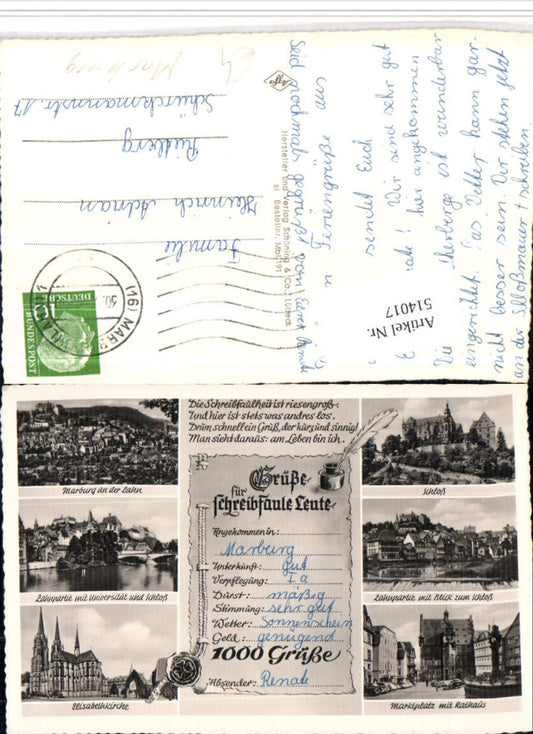 Marburg
64
Familie
Heinrich Adrian
Rietberg
Schürckmannstr. 17
DEUTSCHE
BUNDESPOST
10
(16) MARB
50.
Agfa
Hersteller und Verlag Schöning & Co., Lübeck
Bestellnr.
Artikel Nr.
514017
Feriengrüße
sendet Euch
Wir sind sehr gut
hier angekommen
Die Herberge ist wunderbar
eingerichtet. Das Wetter kann gar
nicht besser sein. Wir stehen jetzt
an der Schloßmauer + schreiben.
Seid nochmals gegrüßt von
Die Schreibfaulheit ist riesengroß.
Und hier ist stets was andres los.
Drum schnell ein Gruß, der kurz und sinnig!
Man sieht daraus: am Leben bin ich.
Grüße
für
schreibfaule Leute
Angekommen in:
Marburg
Unterkunft: gut
Verpflegung: Ia
Durst: mäßig
Stimmung: sehr gut
Wetter: Sonnenschein
Geld: genügend
1000 Grüße
Absender: Renate
Marburg an der Lahn
Lahnpartie mit Universität und Schloß
Elisabethkirche
Schloß
Lahnpartie mit Blick zum Schloß
Marktplatz mit Rathaus